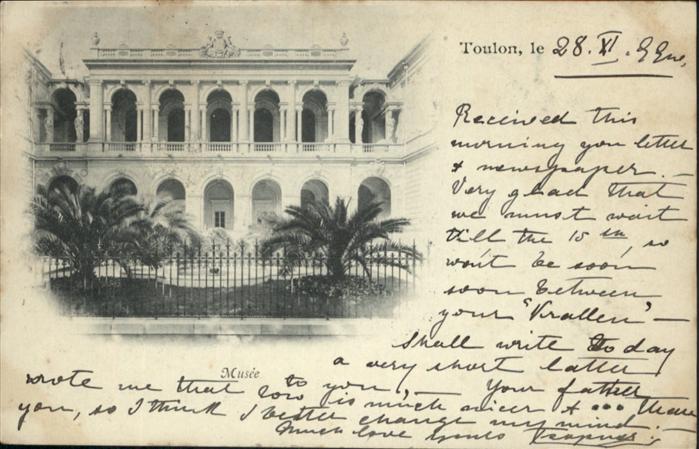 Toulon, le 28. XI. 99
Received this
morning you letter
& newspaper. –
Very glad that
we must wait
till the 15 th, so
won't be soon
soon between
your "Krallen" –
shall write to day
a very short letter
Musée
wrote me that to you, – Your father
row is much nicer & ... than
you, so I think I better change my mind. –
Much love yours